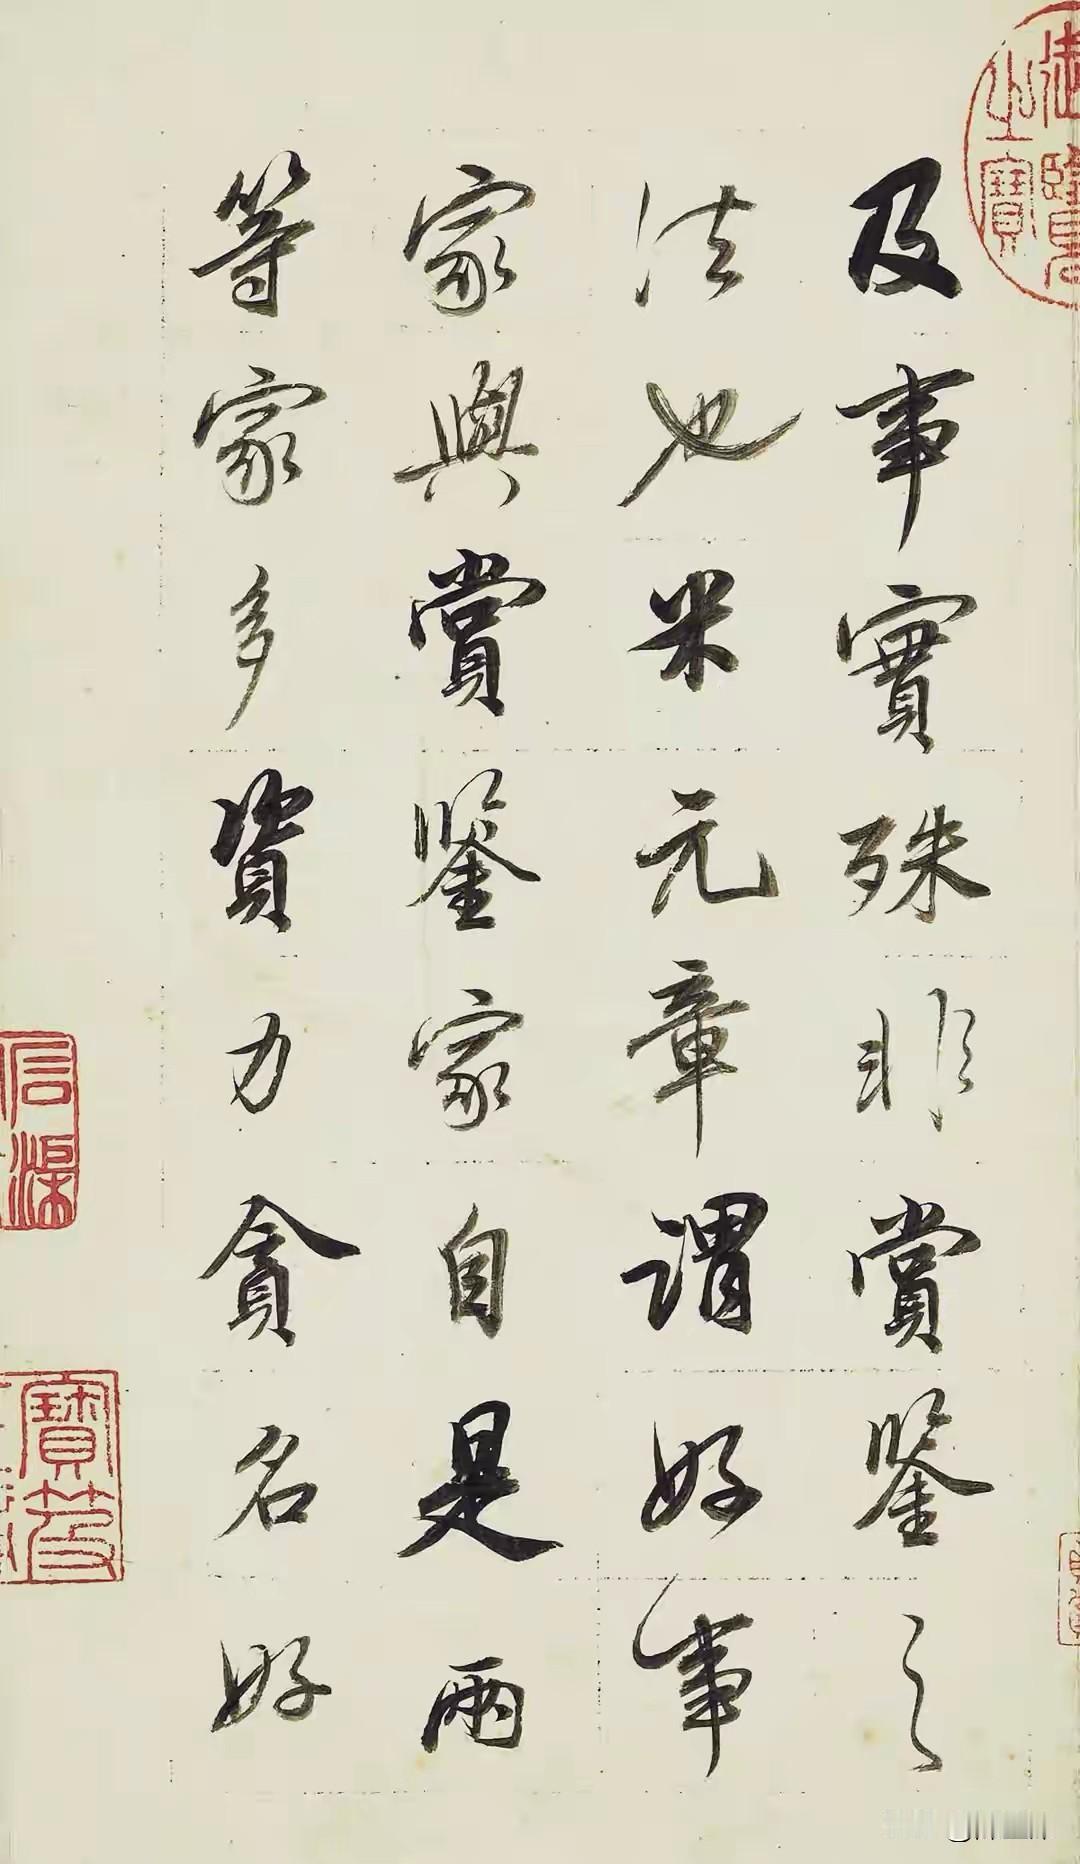 及事實殊非賞鑒之
法也米元章謂好事
家與賞鑒家自是兩
等家多資力貪名好
御覽之寶